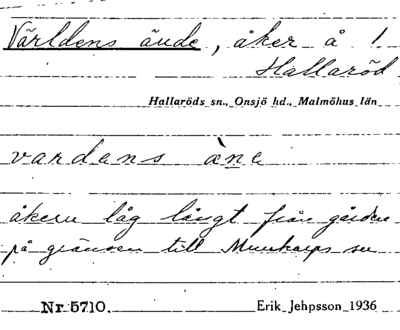 Världens ände, åker å 1
Hallaröd
Hallaröds sn., Onsjö hd., Malmöhus län
vardens àne
åkern låg långt från gården
på gränsen till Munkarps sn
Nr 5710.
Erik Jehpsson 1936